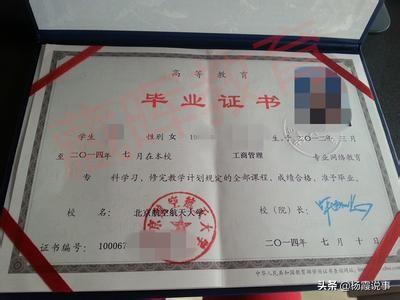 高等教育
毕业证书
学生 性别 女 19 生，于二〇一二年三月
至二〇一四年 七月在本校 工商管理 专业网络教育
专 科学习，修完教学计划规定的全部课程，成绩合格，准予毕业。
校 名： 北京航空航天大学 校（院）长：
证书编号：100067 二〇一四年 七月 十日
中华人民共和国教育部学历证书查询网址：
头条 @杨霞说事